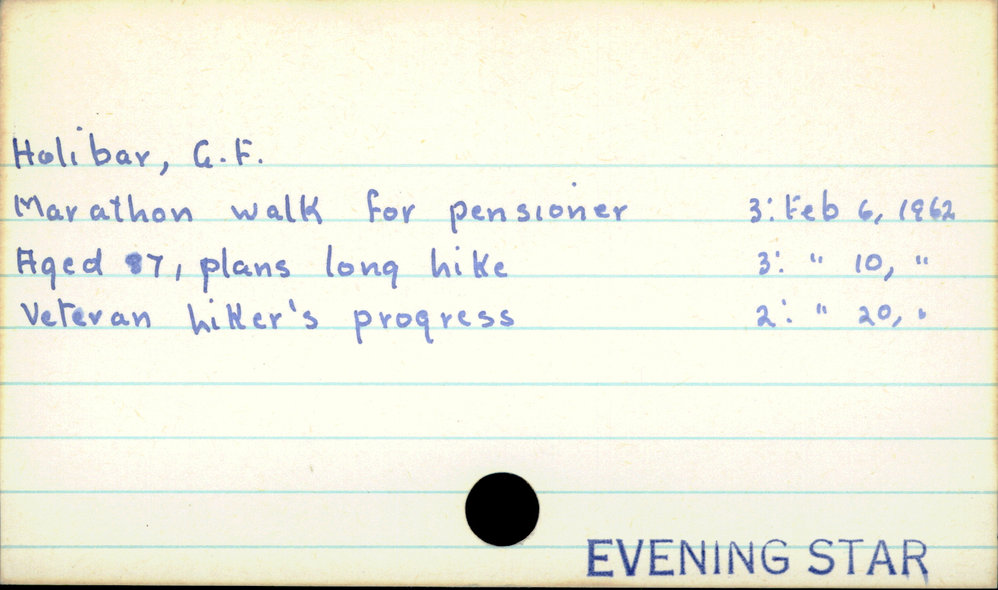 Holibar, G.F.
Marathon walk for pensioner 3: Feb 6, 1962
Aged 87, plans long hike 3: " 10, "
Veteran hiker's progress 2: " 20, "
EVENING STAR